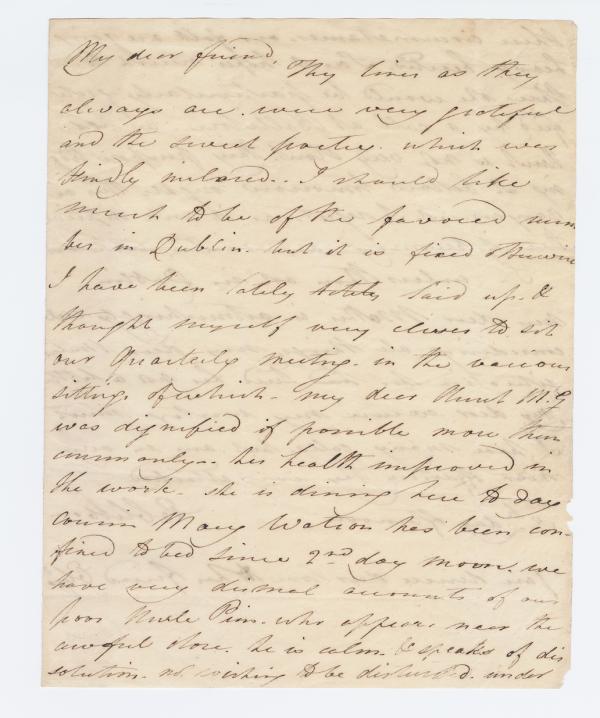 My dear friend,
Thy lines as they
always are were very grateful
and the sweet poetry which was
kindly inclosed.. I should like
much to be of the favored num
ber in Dublin. but it is fixed otherwise
I have been lately laid up. &
thought myself very clever to sit
our Quarterly meeting. in the various
sittings of which. my dear Aunt M. G
was dignified if possible more than
commonly.. her health improved in
the work. she is dining here to day
cousin Mary Watson has been con-
fined to bed since 2nd day morn. we
have very dismal accounts of our
poor Uncle Pim. who appears near the
awful close. he is calm. & speaks of dis
solution. not wishing to be disturbed. under